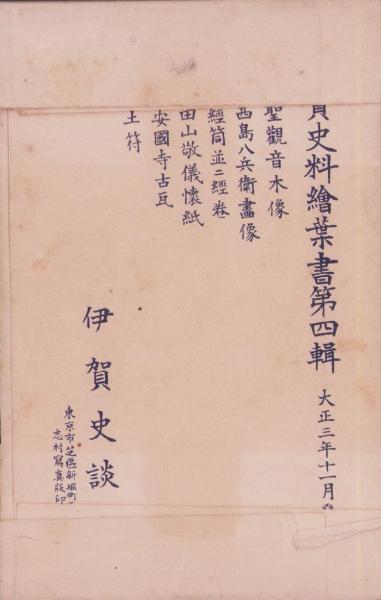 賀史料繪葉書第四輯 大正三年十一月
聖觀音木像
西島八兵衛畵像
經筒並ニ經卷
田山敬儀懷紙
安國寺古瓦
土符
伊賀史談
東京市芝區新堀町
志村寫真版印